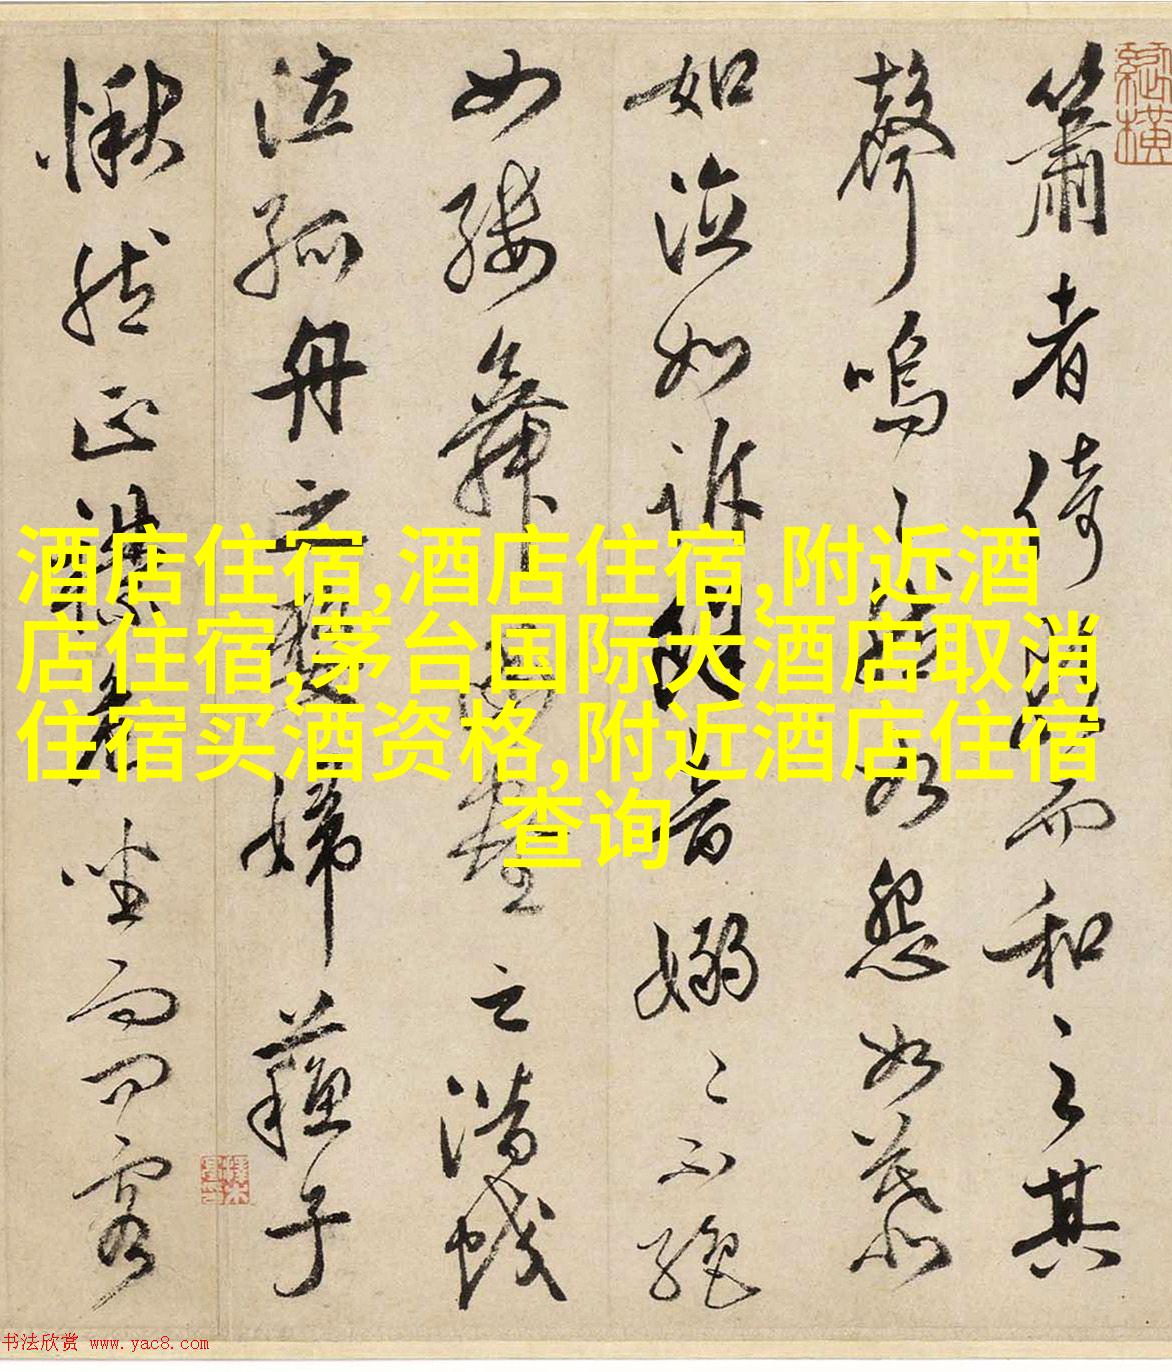 簫者倚歌而和之其
聲嗚〻然如怨如慕
如泣如訴餘音嫋〻不絕
如縷舞幽壑之潛蛟
泣孤舟之嫠婦蘇子
愀然正襟危坐而問客
酒店住宿,酒店住宿,附近酒
店住宿,茅台国际大酒店取消
住宿买酒资格,附近酒店住宿
查询
书法欣赏 www.yac8.com